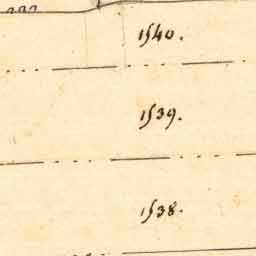 1540.
1539.
1538.